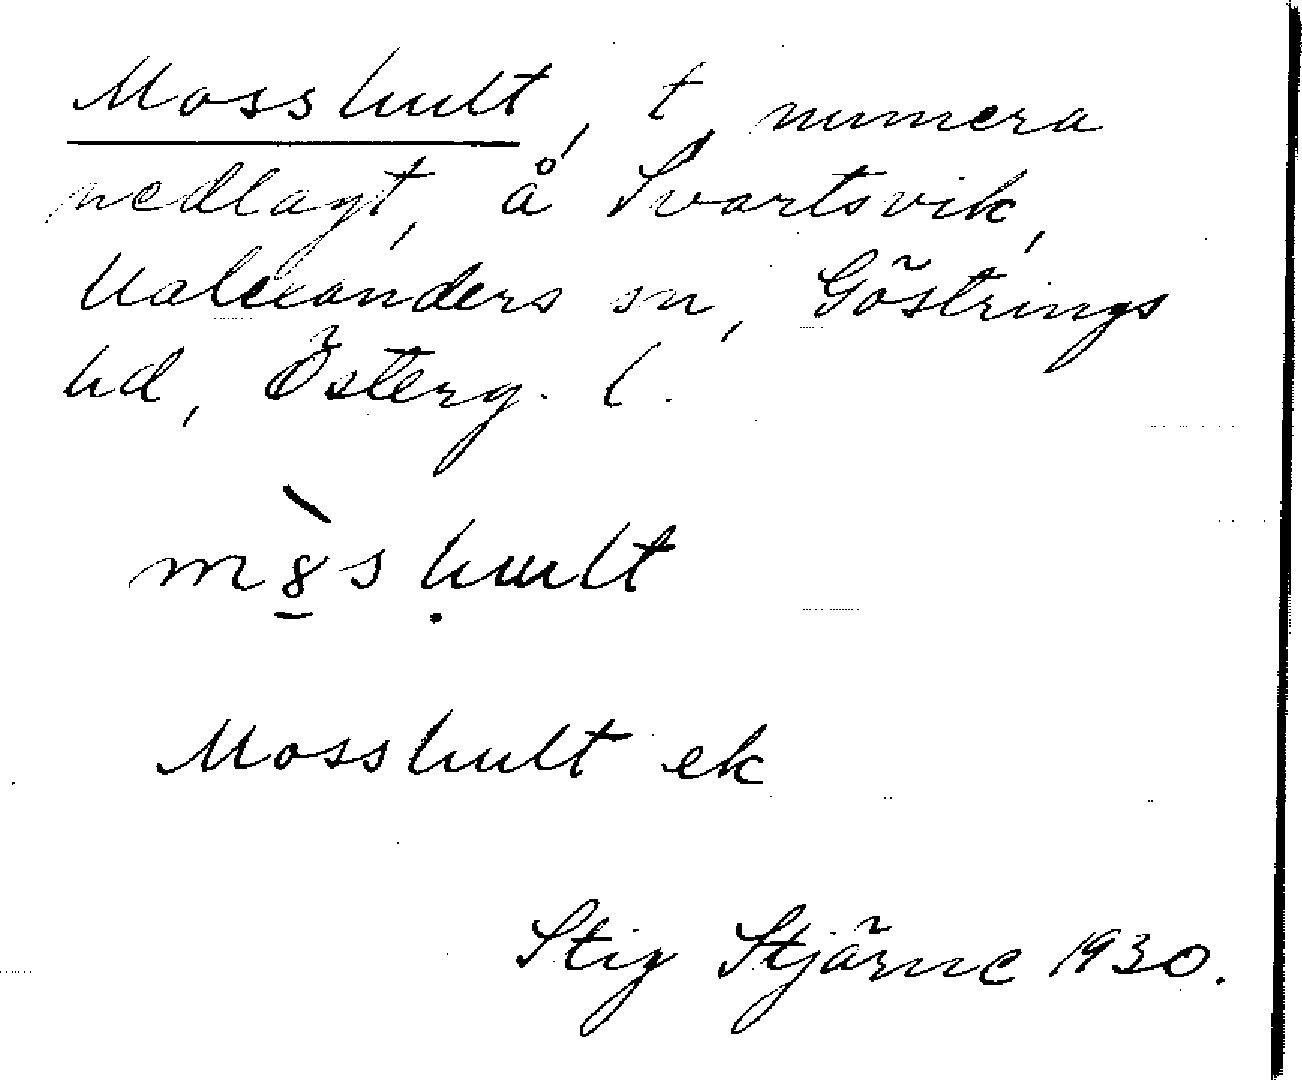 Mosshult, t, numera
nedlagt, å Svartsvik,
Valexanders sn, Göstrings
hd, Österg. l.
Mosshult ek
Stig Stjärne 1930.